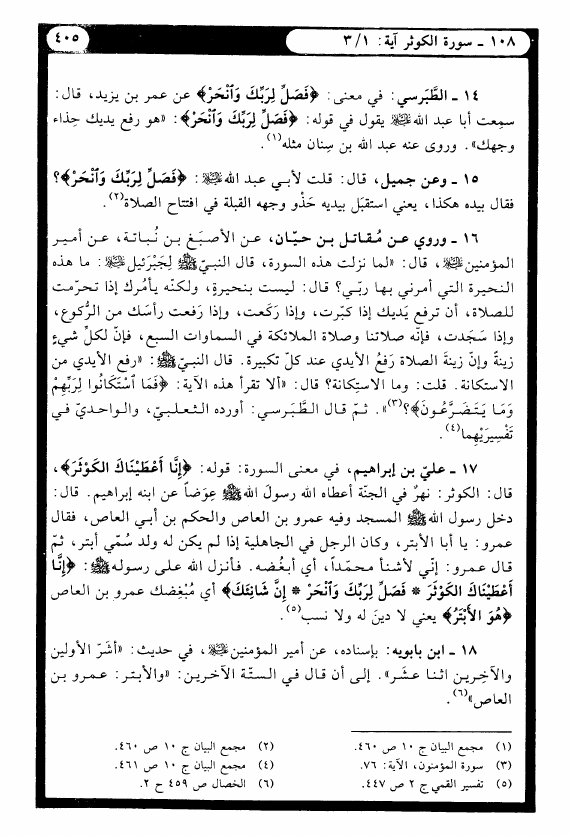 ١٠٨ ـ سورة الكوثر آية: ١ /٣
٤٠٥
١٤ ـ الطَّبَرسي: في معنى: ﴿فَصَلِّ لِرَبِّكَ وَٱنْحَرْ﴾ عن عمر بن يزيد، قال:
سمِعت أبا عبد الله ﷺ يقول في قوله: ﴿فَصَلِّ لِرَبِّكَ وَٱنْحَرْ﴾: «هو رفع يديك حِذاء
وجهك». وروى عنه عبد الله بن سِنان مثله(١).
١٥ ـ وعن جميل، قال: قلت لأبي عبد الله ﷺ: ﴿فَصَلِّ لِرَبِّكَ وَٱنْحَرْ﴾؟
فقال بيده هكذا، يعني استقبَل بيديه حَذْو وجهه القبلة في افتتاح الصلاة(٢).
١٦ ـ وروي عن مُقاتل بن حيّان، عن الأصبَغ بن نُباتة، عن أمير
المؤمنين ﷺ، قال: «لما نزلت هذه السورة، قال النبيّ ﷺ لِجَبْرئيل ﷺ: ما هذه
النحيرة التي أمرني بها ربّي؟ قال: ليست بنحيرةٍ، ولكنّه يأمُرك إذا تحرّمت
للصلاة، أن ترفع يَديك إذا كبّرت، وإذا رَكعت، وإذا رَفعت رأسَك من الرُّكوع،
وإذا سَجَدت، فإنّه صلاتنا وصلاة الملائكة في السماوات السبع، فإنّ لكلِّ شيءٍ
زينةً وإنّ زينةَ الصلاة رَفعُ الأيدي عند كلّ تكبيرة. قال النبيّ ﷺ: «رفع الأيدي من
الاستكانة. قلت: وما الاستِكانة؟ قال: «ألا تقرأ هذه الآية: ﴿فَمَا ٱسْتَكَانُوا لِرَبِّهِمْ
وَمَا يَتَضَرَّعُونَ﴾؟(٣)». ثمّ قال الطَّبرسي: أورده الثعلبيّ، والواحديّ في
تَفْسِيرَيْهِما(٤).
١٧ ـ عليّ بن إبراهيم، في معنى السورة: قوله: ﴿إِنَّا أَعْطَيْنَاكَ الكَوْثَرَ﴾،
قال: الكوثر: نهرٌ في الجنّة أعطاه الله رسولَ الله ﷺ عِوَضاً عن ابنه إبراهيم. قال:
دخل رسول الله ﷺ المسجد وفيه عمرو بن العاص والحكم بن أبي العاص، فقال
عمرو: يا أبا الأبتر، وكان الرجل في الجاهلية إذا لم يكن له ولد سُمّي أبتر، ثمّ
قال عمرو: إنّي لأشنأ محمّداً، أي أبغُضه. فأنزل الله على رسوله ﷺ: ﴿إِنَّا
أَعْطَيْنَاكَ الكَوْثَرَ * فَصَلِّ لِرَبِّكَ وَٱنْحَرْ * إِنَّ شَانِئَكَ﴾ أي مُبْغِضك عمرو بن العاص
﴿هُوَ الأَبْتَرُ﴾ يعني لا دينَ له ولا نسب(٥).
١٨ ـ ابن بابويه: بإسناده، عن أمير المؤمنين ﷺ، في حديث: «أشَرّ الأولين
والآخِرين اثنا عشَر». إلى أن قال في الستّة الآخرين: «والأبتر: عمرو بن
العاص»(٦).
(١) مجمع البيان ج ١٠ ص ٤٦٠.
(٢) مجمع البيان ج ١٠ ص ٤٦٠.
(٣) سورة المؤمنون، الآية: ٧٦.
(٤) مجمع البيان ج ١٠ ص ٤٦١.
(٥) تفسير القمي ج ٢ ص ٤٤٧.
(٦) الخصال ص ٤٥٩ ح ٢.